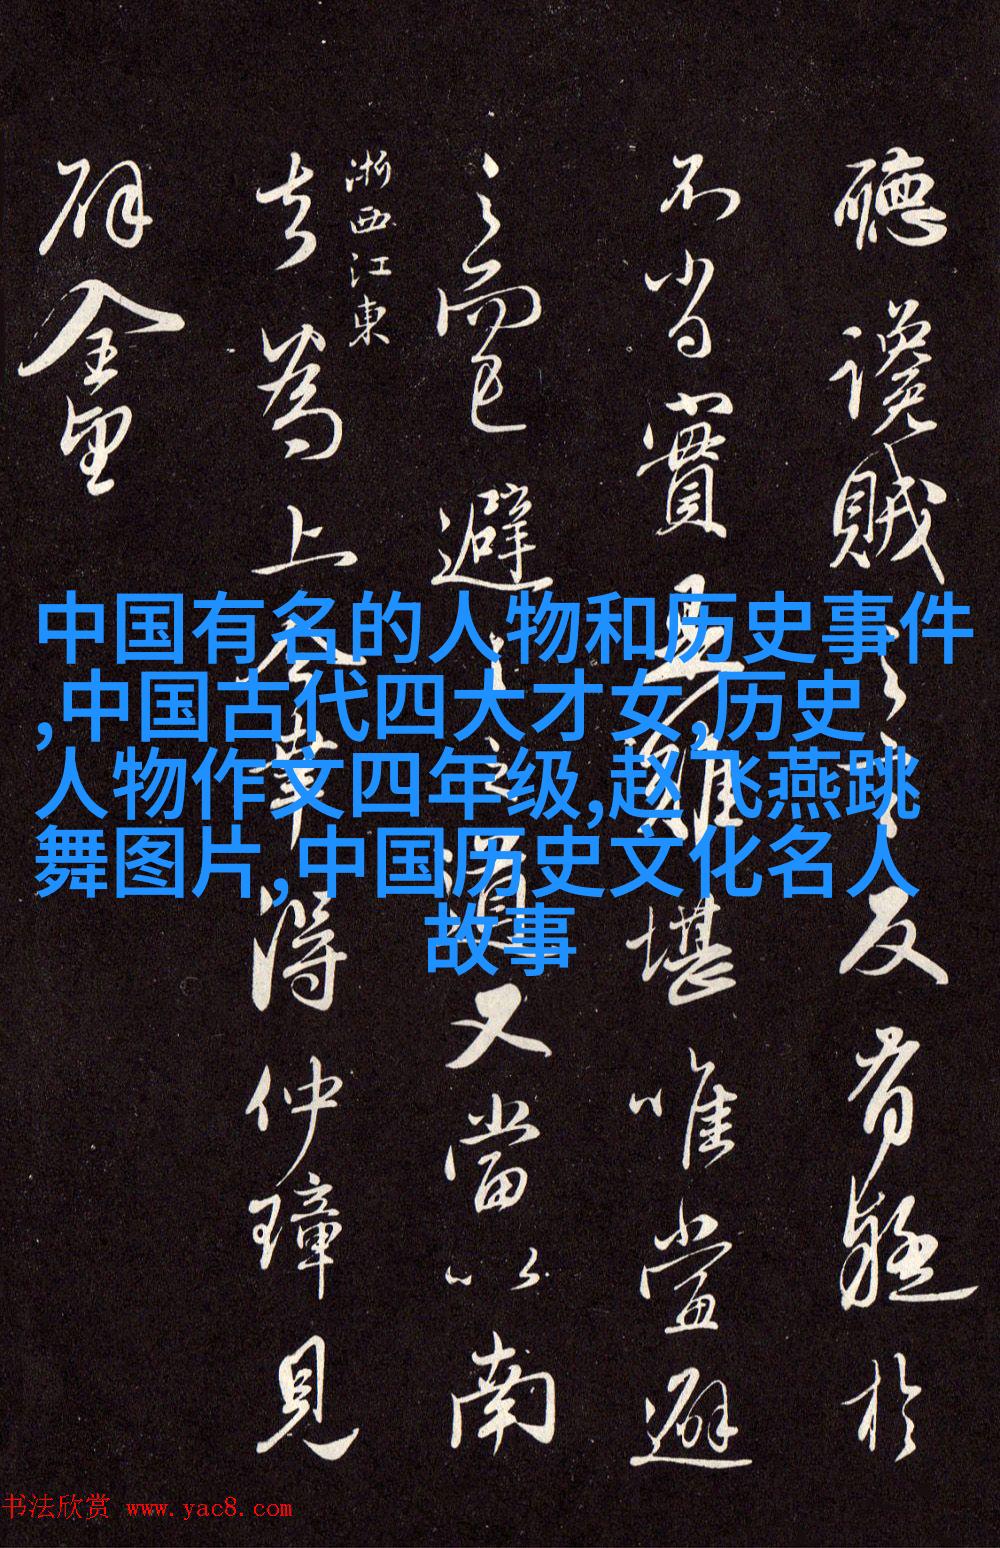 聽讒賊之反疑於
不省實難堪唯當避
之而已避之之道又當以南
去為上今幸得仲璋見
浙西江東
辟金
中国有名的人物和历史事件
,中国古代四大才女,历史
人物作文四年级,赵飞燕跳
舞图片,中国历史文化名人
故事
书法欣赏 www.yac8.com